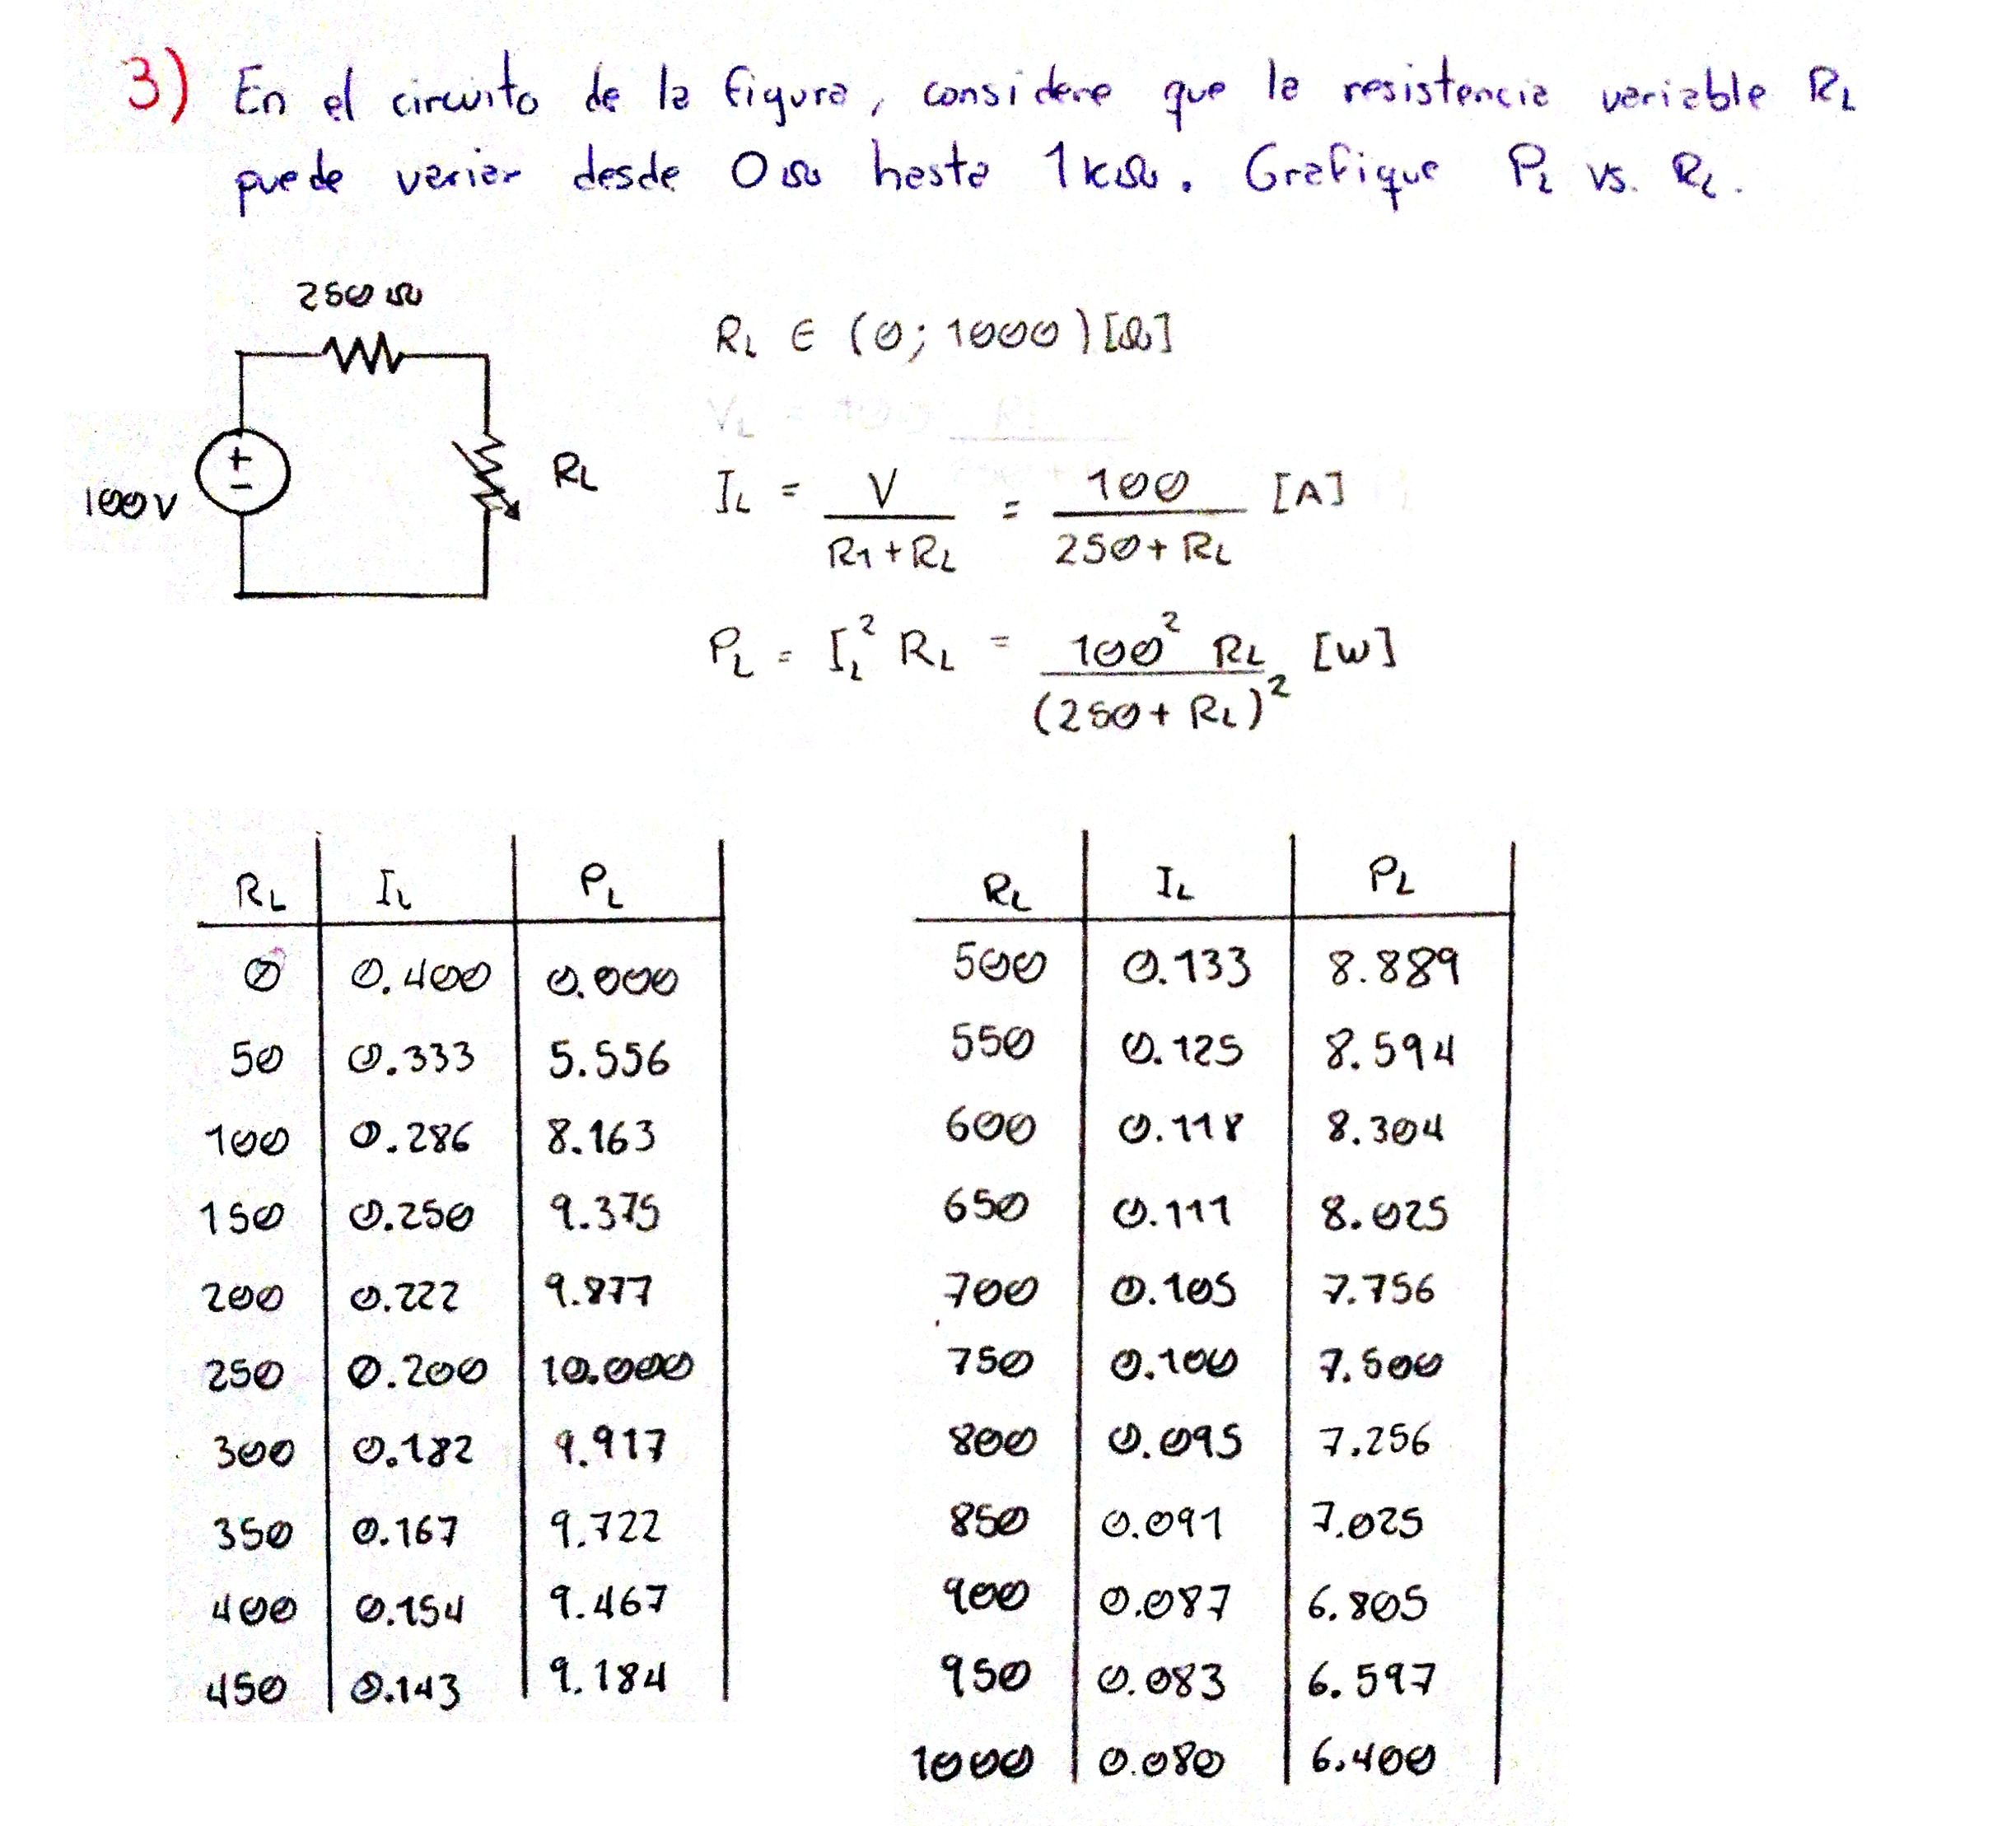 3) En el circuito de la figura, considere que la resistencia variable RL
puede variar desde 0Ω hasta 1kΩ. Grafique PL vs. RL.
250Ω
100V
+
-
RL
RL ∈ (0; 1000) [Ω]
IL = V / (R1+RL) = 100 / (250+RL) [A]
PL = IL² RL = 100² RL / (250+RL)² [W]
RL IL PL
0 0.400 0.000
50 0.333 5.556
100 0.286 8.163
150 0.250 9.375
200 0.222 9.877
250 0.200 10.000
300 0.182 9.917
350 0.167 9.722
400 0.154 9.467
450 0.143 9.184
RL IL PL
500 0.133 8.889
550 0.125 8.594
600 0.118 8.304
650 0.111 8.025
700 0.105 7.756
750 0.100 7.500
800 0.095 7.256
850 0.091 7.025
900 0.087 6.805
950 0.083 6.597
1000 0.080 6.400